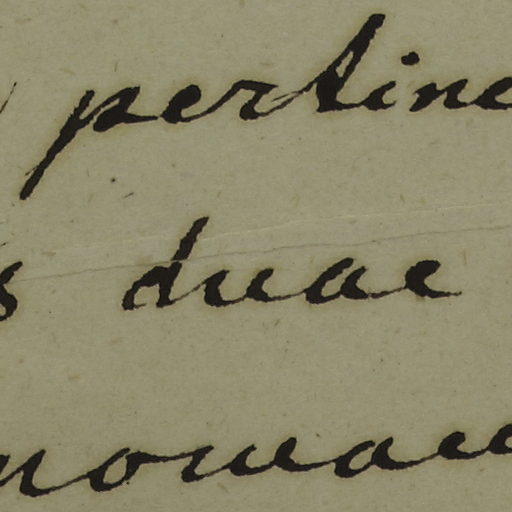 pertine
s duae
novae